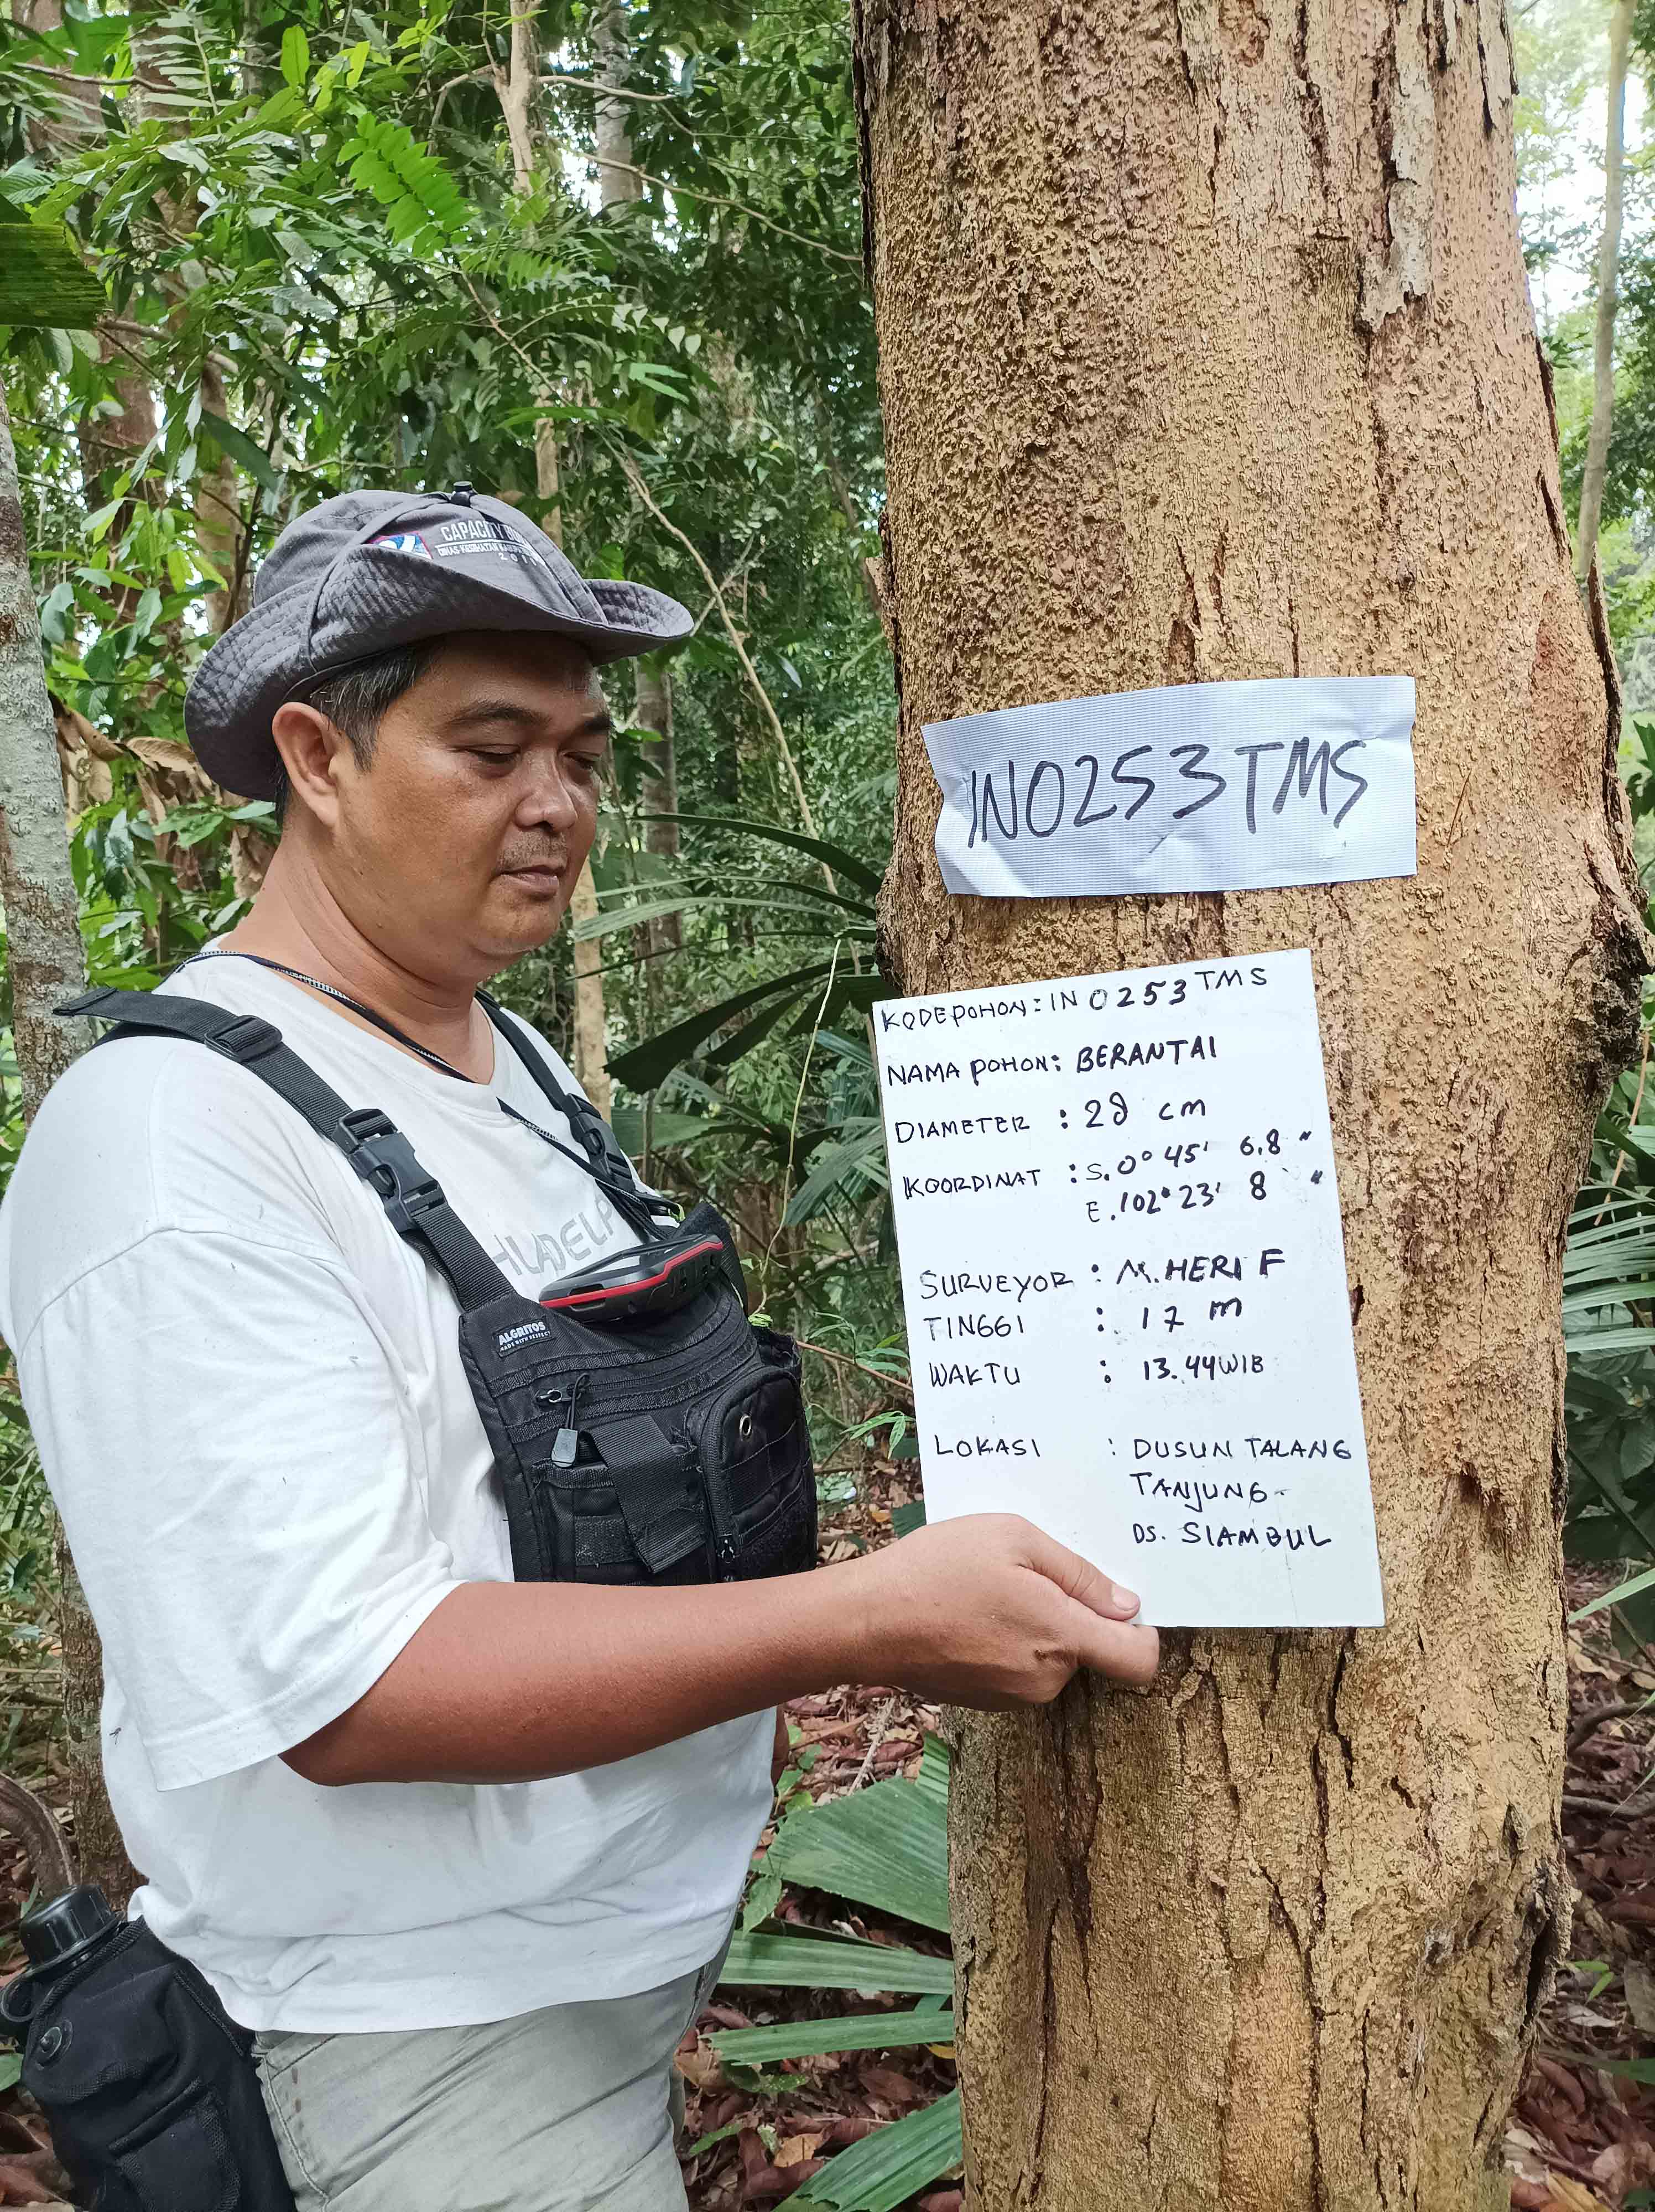 CAPACITY
DINAS KESEHATAN
IN0253TMS
KODE POHON : IN 0253 TMS
NAMA POHON : BERANTAI
DIAMETER : 28 cm
KOORDINAT : S. 0° 45' 6.8 "
E. 102° 23' 8 "
SURVEYOR : M. HERI F
TINGGI : 17 m
WAKTU : 13.44 WIB
LOKASI : DUSUN TALANG
TANJUNG-
DS. SIAMBUL
ALGRITOS
MADE WITH RESPECT